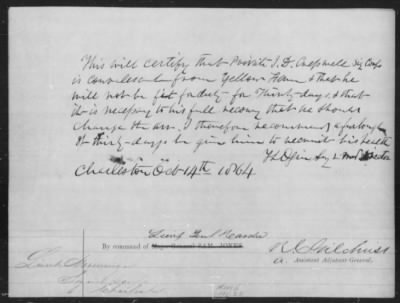 This will certify that Private J. D. Creswell Sig Corps
is convalescent from Yellow Fever & that he
will not be fit for duty for Thirty days, & that
it is necessary to his full recovery that he should
change the air. I therefore recommend a furlough
of thirty-days be given him to recruit his health
Surg &
Charleston Oct 14th 1864
Lieut Genl Hardee
By command of Major General SAM. JONES.
A. Assistant Adjutant-General.